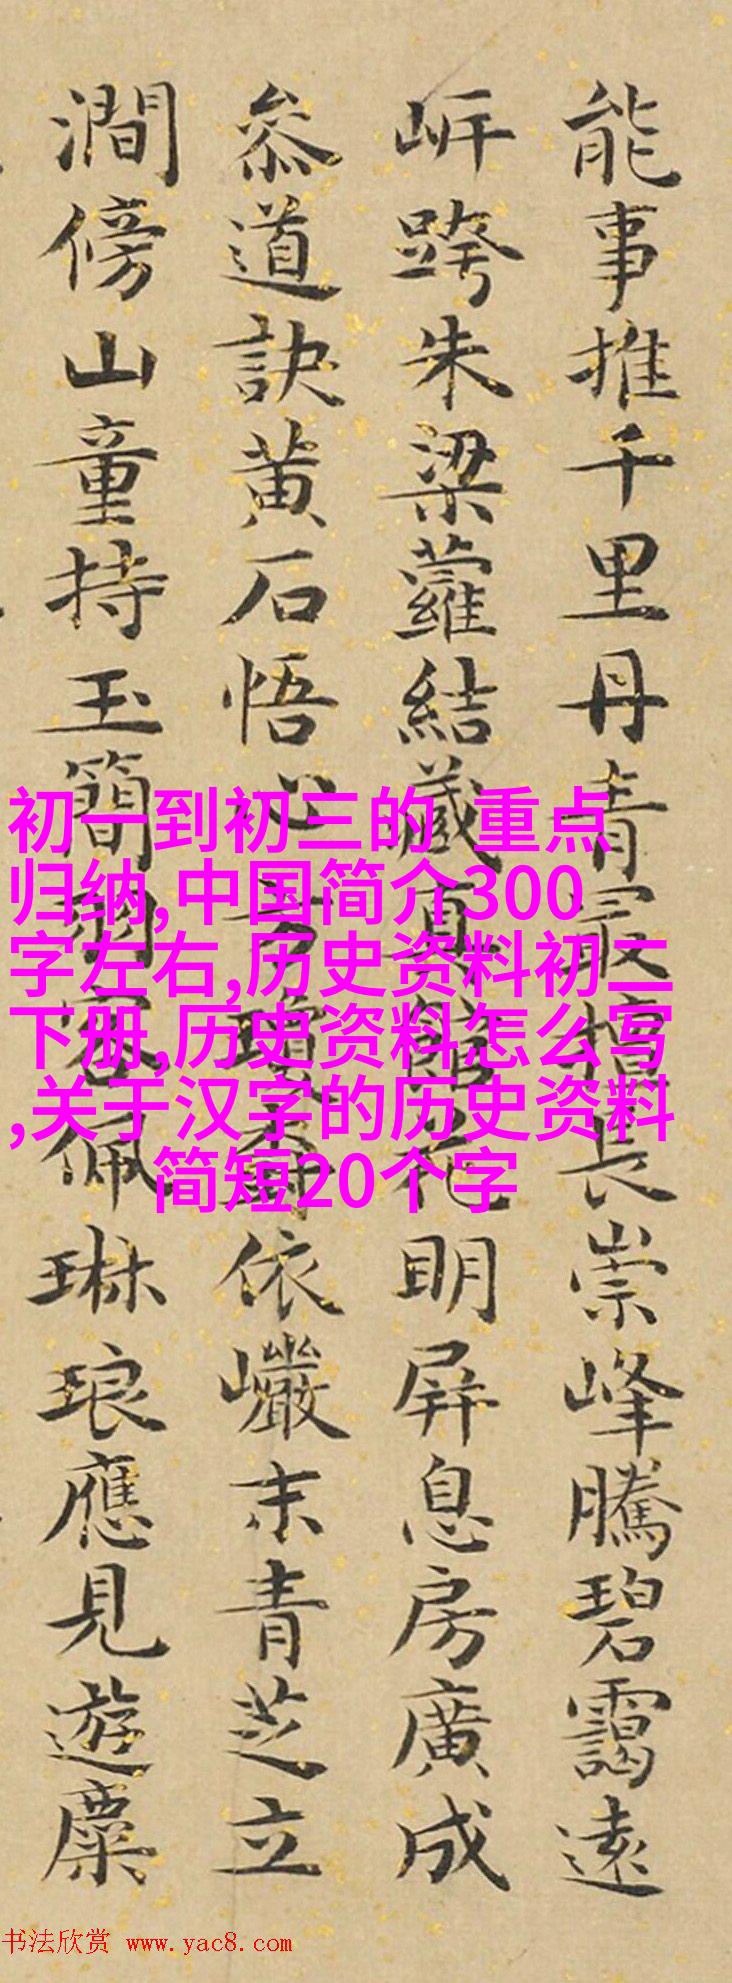 能事推千里丹青冣擅長崇峰騰碧靄遠
岍跨朱梁蘿結蔵真館花明屏息房廣成
叅道訣黄石悟心依巗末青芝立
澗傍山童持玉簡客佩琳琅應見遊麋
初一到初三的 重点
归纳,中国简介300
字左右,历史资料初二
下册,历史资料怎么写
,关于汉字的历史资料
简短20个字
书法欣赏 www.yac8.com